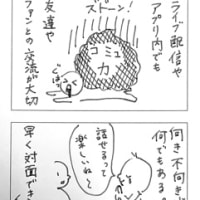 ライブ配信や
アプリ内でも
ストーン!
コミュ
力
友達や
ファンとの
交流が大切
向き不向きが
何でもある。
話せるって
楽しいね〜
早く対面でき